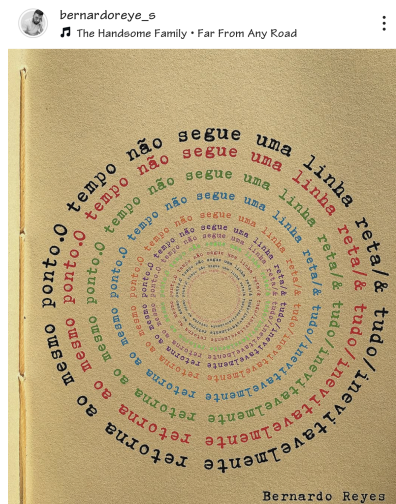 bernardoreye_s
The Handsome Family • Far From Any Road
O tempo não segue uma linha reta/& tudo/inevitavelmente retorna ao mesmo ponto.
O tempo não segue uma linha reta/& tudo/inevitavelmente retorna ao mesmo ponto.
O tempo não segue uma linha reta/& tudo/inevitavelmente retorna ao mesmo ponto.
O tempo não segue uma linha reta/& tudo/inevitavelmente retorna ao mesmo ponto.
O tempo não segue uma linha reta/& tudo/inevitavelmente retorna ao mesmo ponto.
O tempo não segue uma linha reta/& tudo/inevitavelmente retorna ao mesmo ponto.
Bernardo Reyes